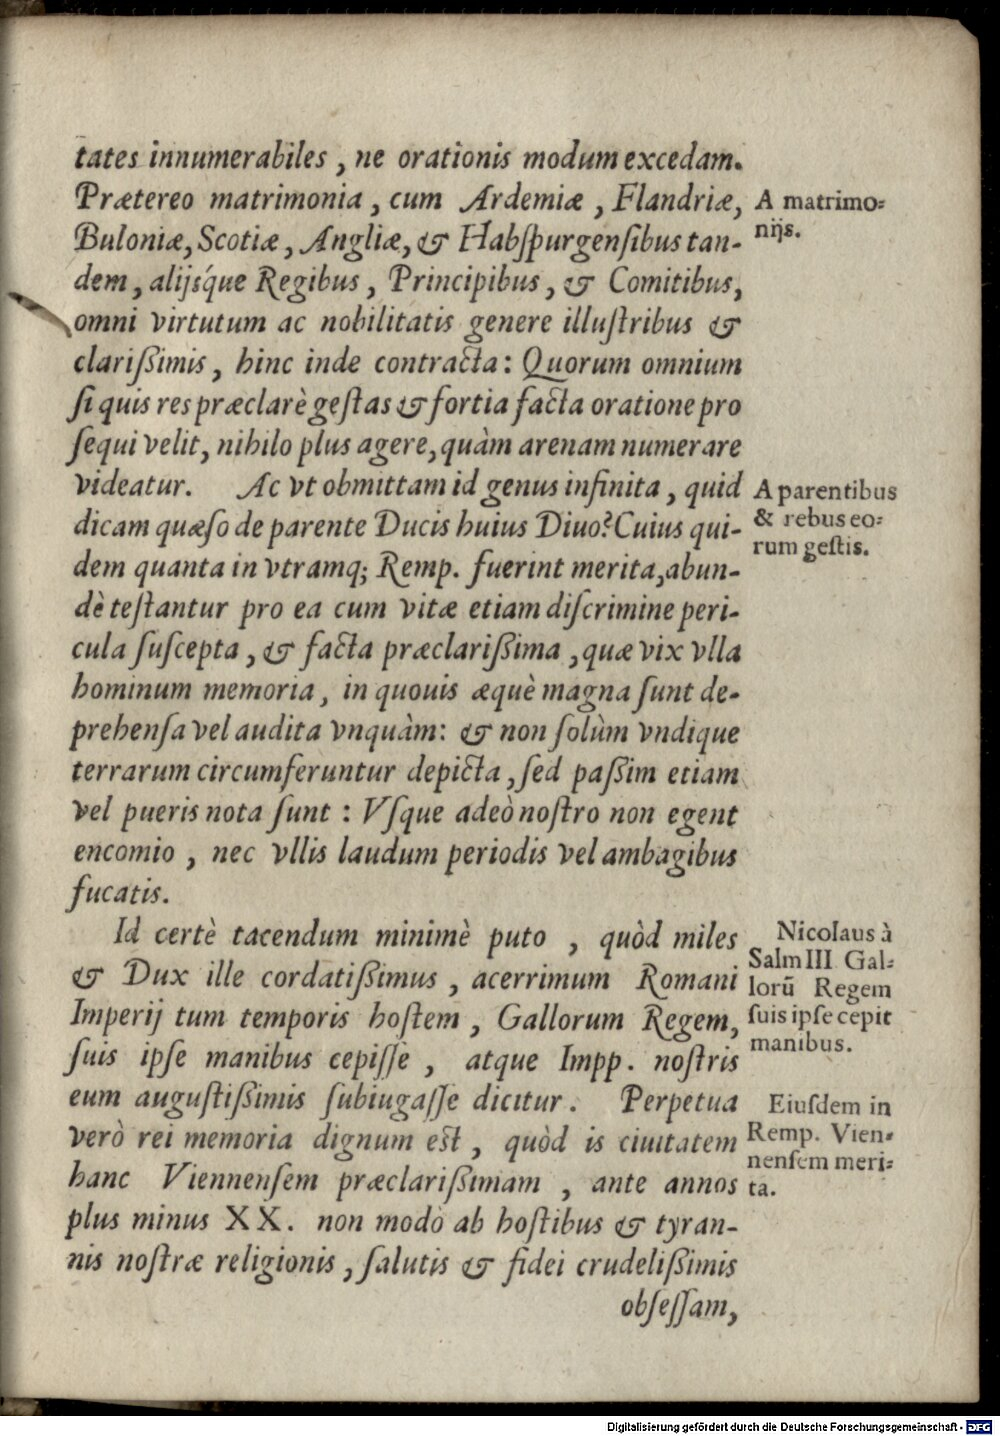 tates innumerabiles , ne orationis modum excedam.
Prætereo matrimonia , cum Ardemiæ , Flandriæ,
Buloniæ, Scotiæ, Angliæ, & Habſpurgenſibus tan-
dem , alijsq́ue Regibus , Principibus , & Comitibus,
omni virtutum ac nobilitatis genere illuſtribus &
clarißimis , hinc inde contracta : Quorum omnium
ſi quis res præclarè geſtas & fortia facta oratione pro
ſequi velit, nihilo plus agere, quàm arenam numerare
videatur. Ac vt obmittam id genus infinita , quid
dicam quæſo de parente Ducis huius Diuo? Cuius qui-
dem quanta in vtramq; Remp. fuerint merita, abun-
dè teſtantur pro ea cum vitæ etiam diſcrimine peri-
cula ſuſcepta , & facta præclarißima , quæ vix vlla
hominum memoria , in quouis æquè magna ſunt de-
prehenſa vel audita vnquàm : & non ſolùm vndique
terrarum circumferuntur depicta , ſed paßim etiam
vel pueris nota ſunt : Vſque adeò noſtro non egent
encomio , nec vllis laudum periodis vel ambagibus
fucatis.
Id certè tacendum minimè puto , quòd miles
& Dux ille cordatißimus , acerrimum Romani
Imperij tum temporis hoſtem , Gallorum Regem,
ſuis ipſe manibus cepiſſe , atque Impp. noſtris
eum auguſtißimis ſubiugaſſe dicitur. Perpetua
verò rei memoria dignum eſt , quòd is ciuitatem
hanc Viennenſem præclarißimam , ante annos
plus minus XX. non modò ab hoſtibus & tyran-
nis noſtræ religionis , ſalutis & fidei crudelißimis
obſeſſam,
A matrimo-
nijs.
A parentibus
& rebus eo-
rum geſtis.
Nicolaus à
Salm III Gal-
lorū Regem
ſuis ipſe cepit
manibus.
Eiuſdem in
Remp. Vien-
nenſem meri-
ta.
Digitalisierung gefördert durch die Deutsche Forschungsgemeinschaft - DFG